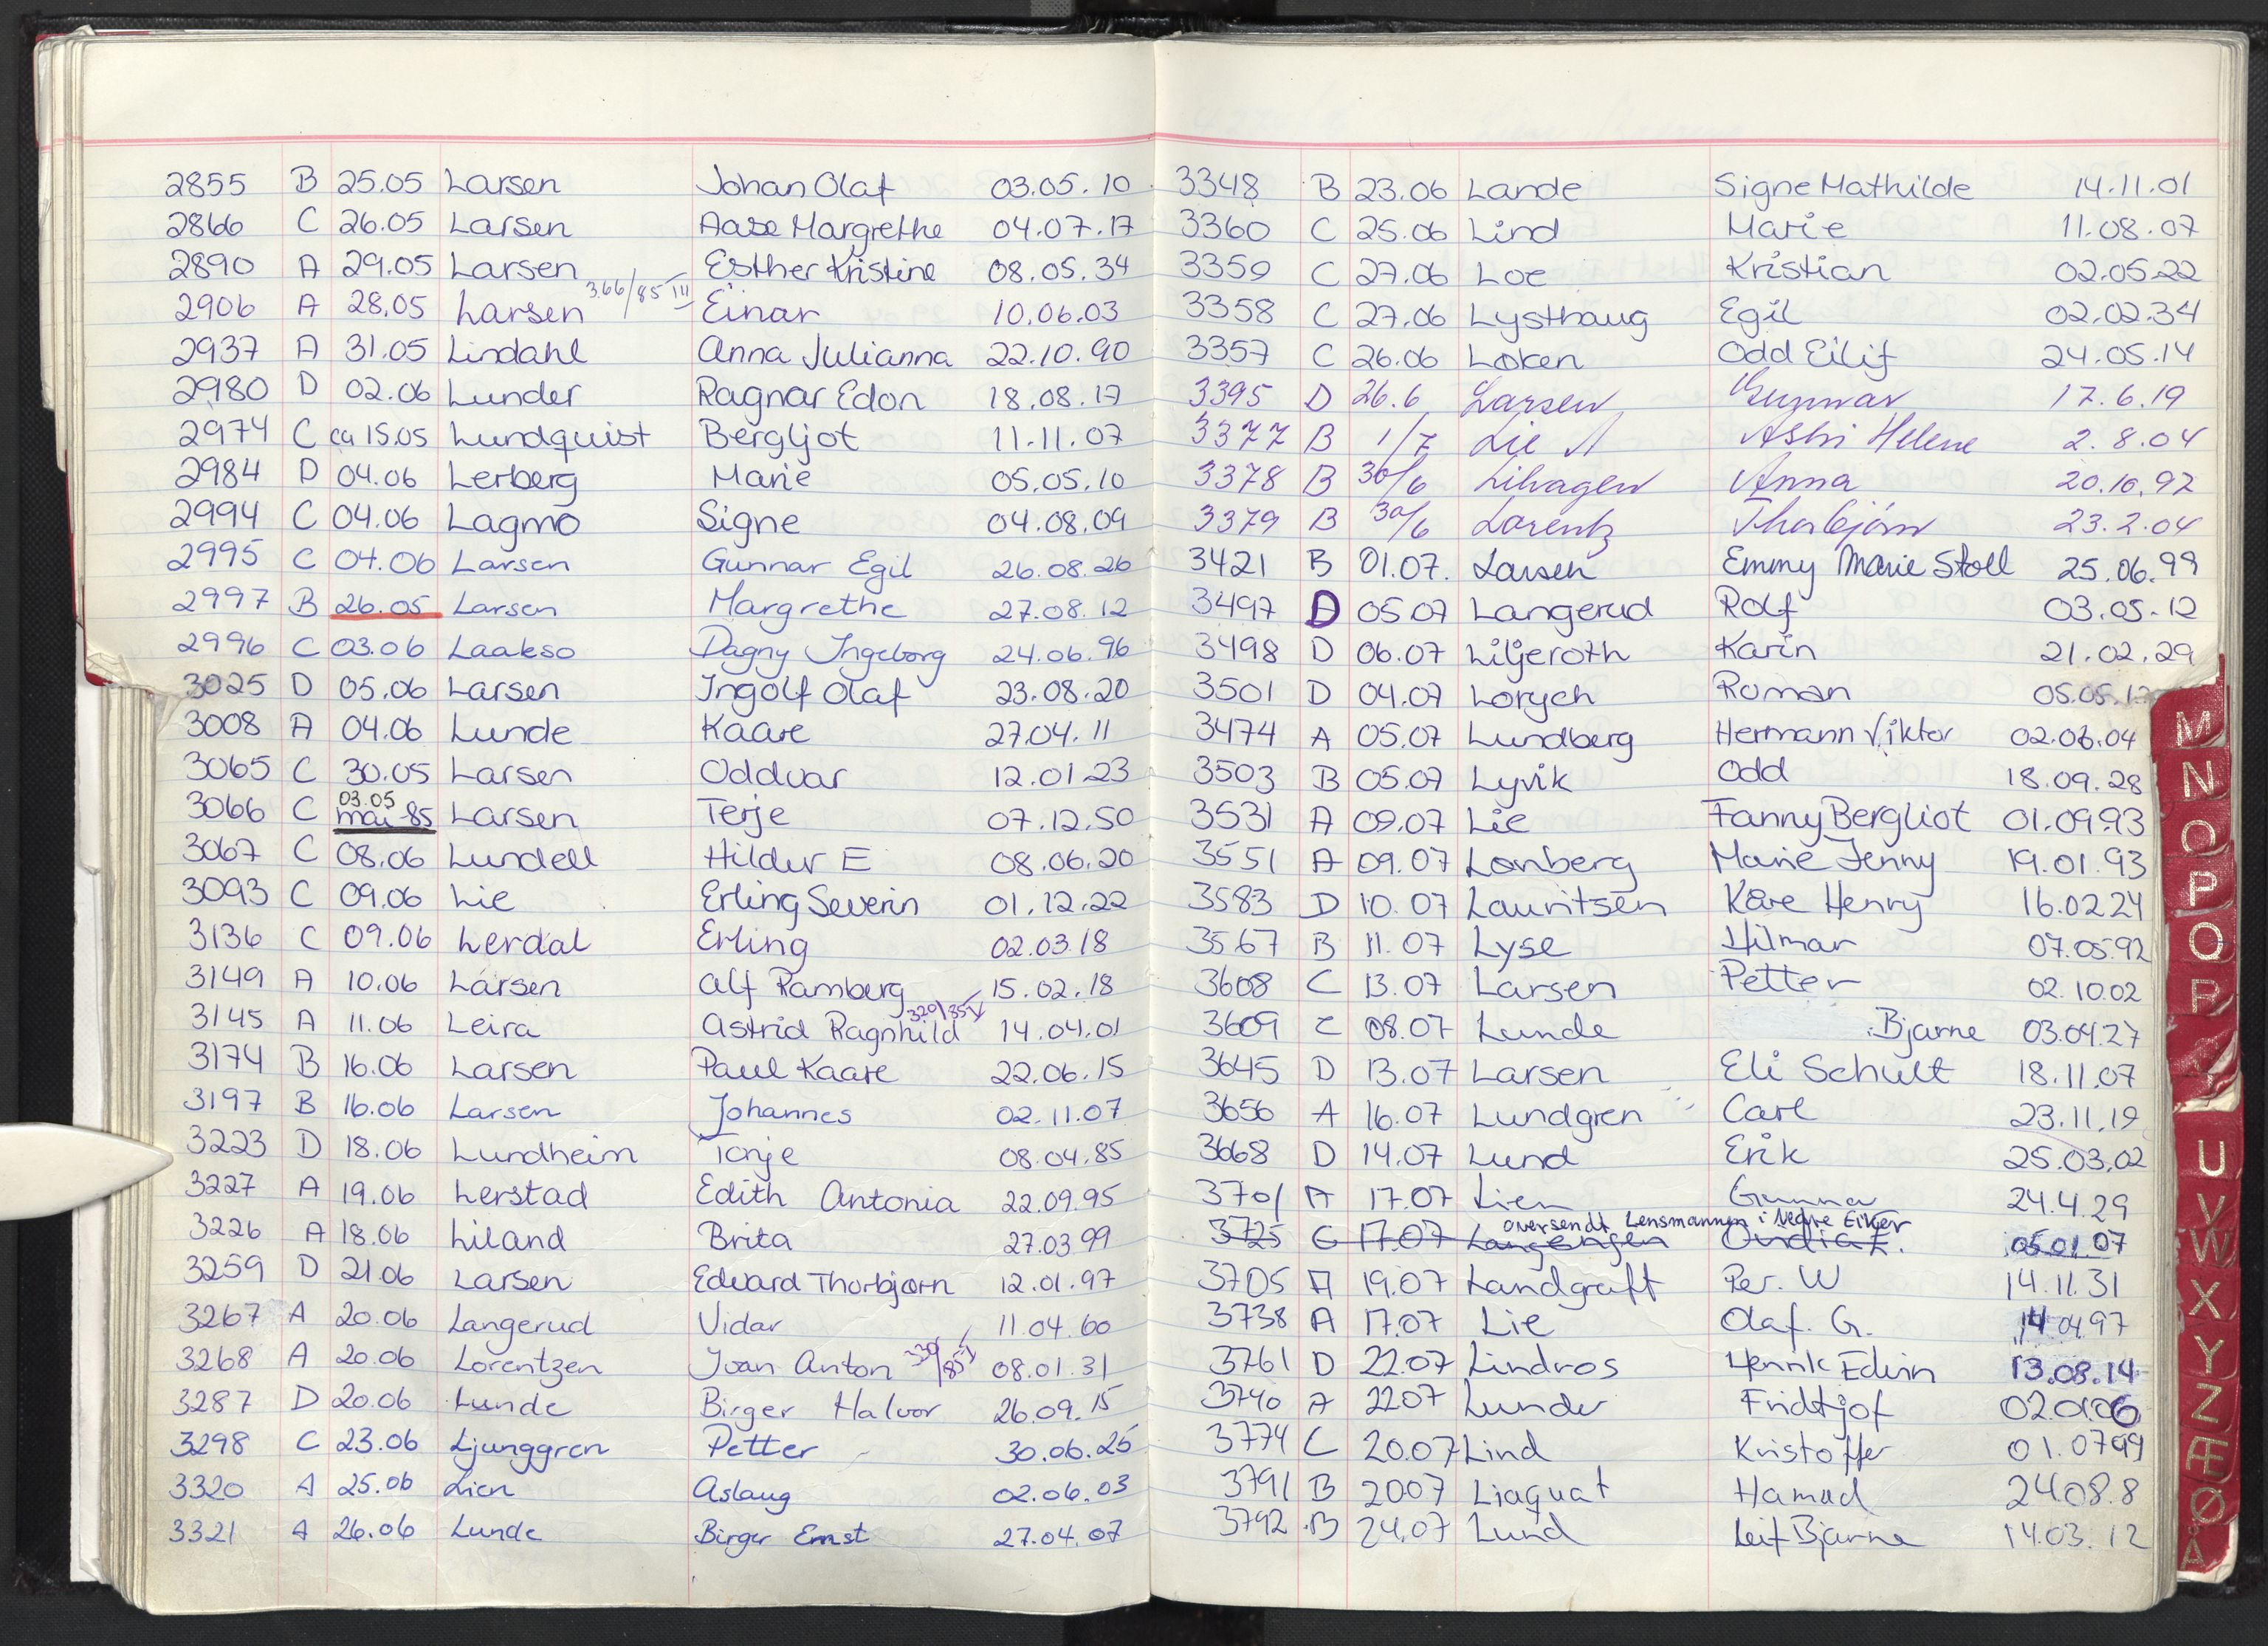 2855 B 25.05 Larsen Johan Olaf 03.05.10
2866 C 26.05 Larsen Aase Margrethe 04.07.17
2890 A 29.05 Larsen Esther Kristine 08.05.34
2906 A 28.05 Larsen 366/85 III Einar 10.06.03
2937 A 31.05 Lindahl Anna Julianna 22.10.90
2980 D 02.06 Lunder Ragnar Edon 18.08.17
2974 C ca 15.05 Lundquist Bergljot 11.11.07
2984 D 04.06 Lerberg Marie 05.05.10
2994 C 04.06 Lagmo Signe 04.08.09
2995 C 04.06 Larsen Gunnar Egil 26.08.26
2997 B 26.05 Larsen Margrethe 27.08.12
2996 C 03.06 Laakso Dagny Ingeborg 24.06.96
3025 D 05.06 Larsen Ingolf Olaf 23.08.20
3008 A 04.06 Lunde Kaare 27.04.11
3065 C 30.05 Larsen Oddvar 12.01.23
03.05
3066 C mai-85 Larsen Terje 07.12.50
3067 C 08.06 Lundell Hildur E 08.06.20
3093 C 09.06 Lie Erling Severin 01.12.22
3136 C 09.06 Lerdal Erling 02.03.18
3149 A 10.06 Larsen Alf Ramberg 15.02.18
3145 A 11.06 Leira Astrid Ragnhild 320/85 I 14.04.01
3174 B 16.06 Larsen Paul Kaare 22.06.15
3197 B 16.06 Larsen Johannes 02.11.07
3223 D 18.06 Lundheim Tonje 08.04.85
3227 A 19.06 Lerstad Edith Antonia 22.09.95
3226 A 18.06 Liland Brita 27.03.99
3259 D 21.06 Larsen Edvard Thorbjørn 12.01.97
3267 A 20.06 Langerud Vidar 11.04.60
3268 A 20.06 Lorentzen Ivan Anton 330/85 I 08.01.31
3287 D 20.06 Lunde Birger Halvor 26.09.15
3298 C 23.06 Ljunggren Petter 30.06.25
3320 A 25.06 Lien Aslaug 02.06.03
3321 A 26.06 Lunde Birger Ernst 27.04.07
3348 B 23.06 Lande Signe Mathilde 14.11.01
3360 C 25.06 Lind Marie 11.08.07
3359 C 27.06 Loe Kristian 02.05.22
3358 C 27.06 Lysthaug Egil 02.02.34
3357 C 26.06 Løken Odd Eilif 24.05.14
3395 D 26.6 Larsen Gunnar 17.6.19
3377 B 1/7 Lie A Asbi Helene 2.8.04
3378 B 30/6 Lihagen Anna 20.10.97
3379 B 30/6 Lorentz Thorbjørn 23.2.04
3421 B 01.07. Larsen Emmy Marie Stoll 25.06.99
3497 D 05.07 Langerud Rolf 03.05.12
3498 D 06.07 Liljeroth Karin 21.02.29
3501 D 04.07 Lorych Roman 05.05.
3474 A 05.07 Lundberg Hermann Viktor 02.06.04
3503 B 05.07 Lyvik Odd 18.09.28
3531 A 09.07 Lie Fanny Bergliot 01.09.93
3551 A 09.07 Lønberg Marie Jenny 19.01.93
3583 D 10.07 Lauritsen Kåre Henry 16.02.24
3567 B 11.07 Lyse Hilmar 07.05.92
3608 C 13.07 Larsen Petter 02.10.02
3609 C 08.07 Lunde Bjarne 03.04.27
3645 D 13.07 Larsen Eli Schult 18.11.07
3656 A 16.07 Lundgren Carl 23.11.19
3668 D 14.07 Lund Erik 25.03.02
3701 A 17.07 Lien Gunnar 24.4.29
oversendt Lensmannen i Nedre Eiker
3725 C 17.07 05.01.07
3705 A 19.07 Landgraft Per. W 14.11.31
3738 A 17.07 Lie Olaf. G. 14.04.97
3761 D 22.07 Lindros Henrik Edvin 13.08.14
3740 A 22.07 Lunder Fridtjof
3774 C 20.07 Lind Kristoffer 01.07.99
3791 B 20.07 Liaquat Hamad 24.08.8
3792 B 24.07 Lund Leif Bjarne 14.03.12
M
N
O
P
Q
R
U
V
W
X
Y
Z
Æ
Ø
Å